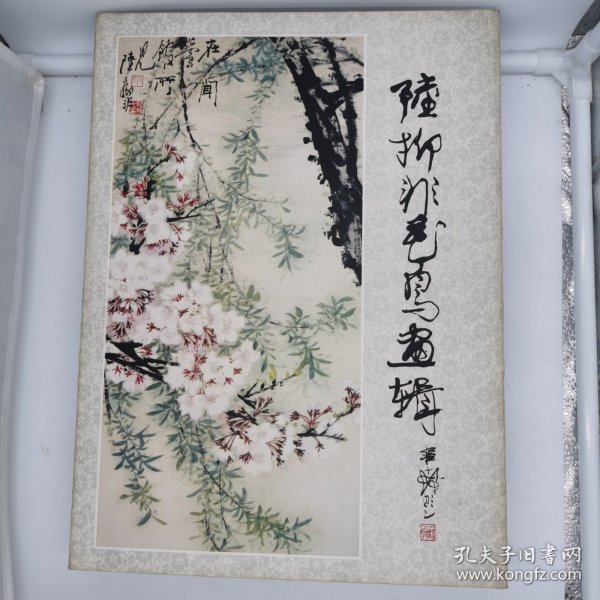 陸抑非花鳥画輯
在闻
莺馆所
见
陸抑非
孔夫子旧书网
www.kongfz.com